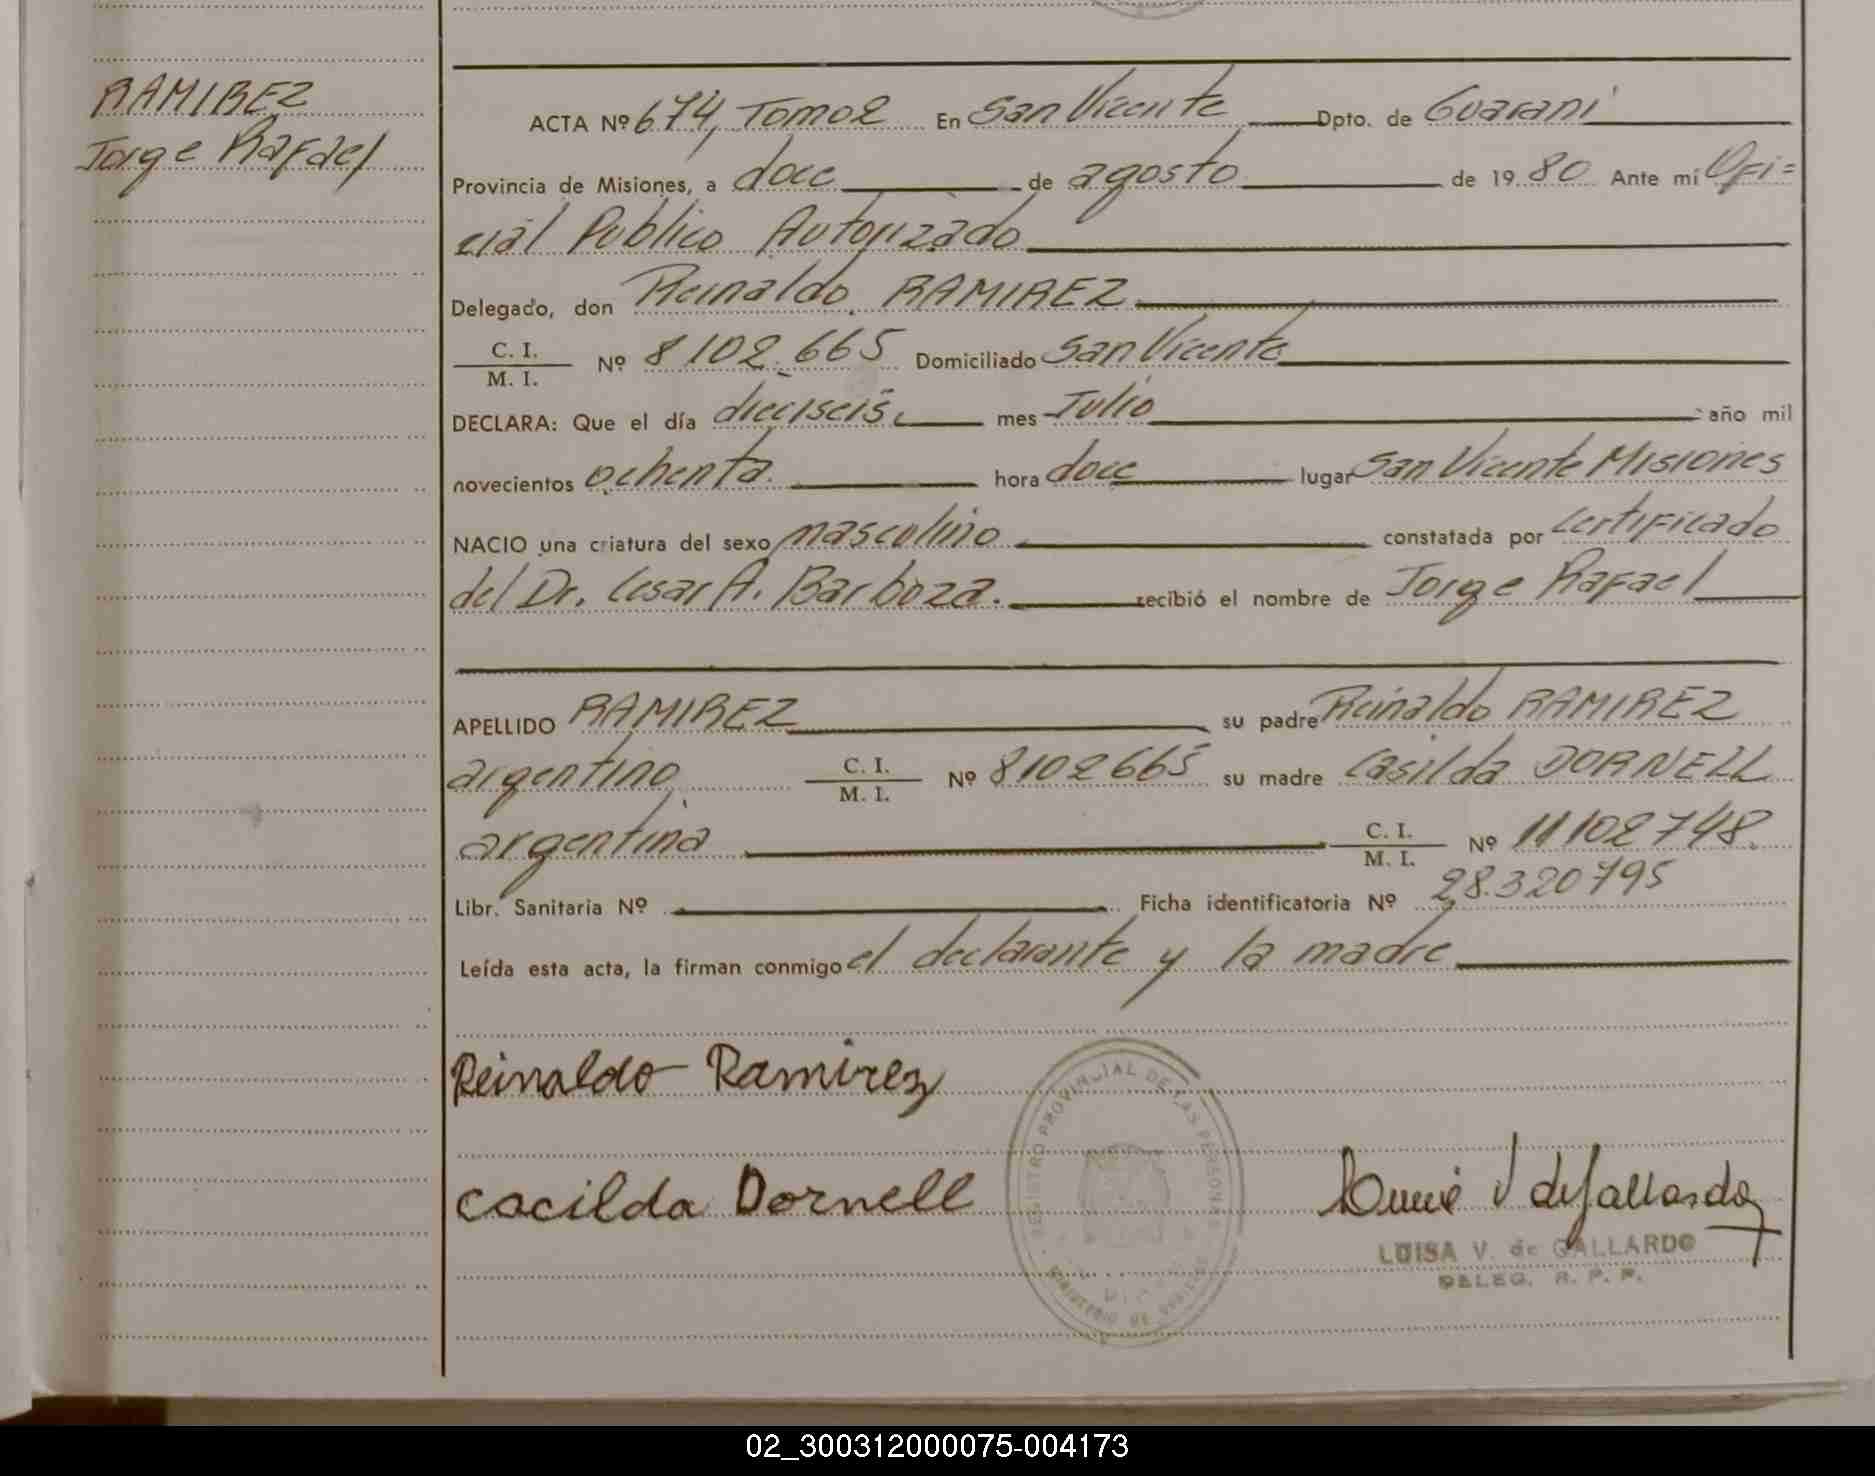 RAMIREZ
Jorge Rafael
ACTA Nº 674, Tomo 2 En San Vicente Dpto. de Guaraní
Provincia de Misiones, a doce de agosto de 1980 Ante mí Ofi=
cial Publico Autorizado
Delegado, don Reinaldo RAMIREZ
C. I.
M. I. Nº 8102.665 Domiciliado San Vicente
DECLARA: Que el día dieciseis mes Julio año mil
novecientos ochenta. hora doce lugar San Vicente Misiones
NACIO una criatura del sexo masculino constatada por certificado
del Dr. Cesar A. Barboza. recibió el nombre de Jorge Rafael
APELLIDO RAMIREZ su padre Reinaldo RAMIREZ
argentino, C. I.
M. I. Nº 8102665 su madre Casilda DORNELL
argentina C. I.
M. I. Nº 11102748.
Libr. Sanitaria Nº Ficha identificatoria Nº 28.320795
Leída esta acta, la firman conmigo el declarante y la madre
Reinaldo Ramirez
REGISTRO PROVINCIAL DE LAS PERSONAS
Cacilda Dornell
V de Gallardo
LUISA V. de GALLARDO
DELEG. R. P. P.
02_300312000075-004173